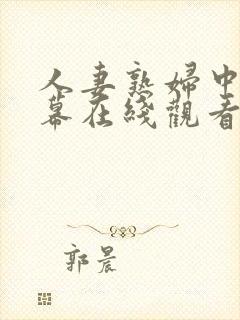 人妻熟婦中
幕在綫觀看
郭晨